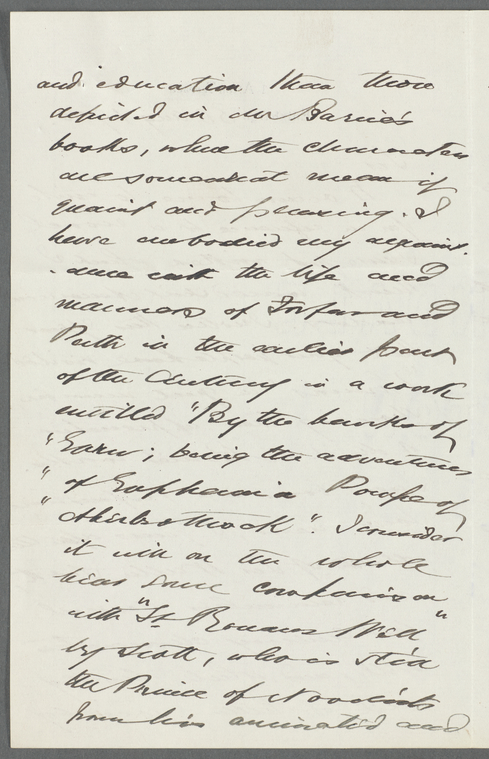 and education than those
depicted in Mr Barrie's
books, where the characters
are somewhat mean if
quaint and pleasing. I
have embodied my acquaint-
-ance with the life and
manners of Forfar and
Perth in the earlier part
of the Century in a work
entitled "By the banks of
"Earn; being the adventures
"of Euphemia
". I consider
it will on the whole
bear some comparison
with "St Ronans Well"
by Scott, who is still
the Prince of Novelists
from his animated and